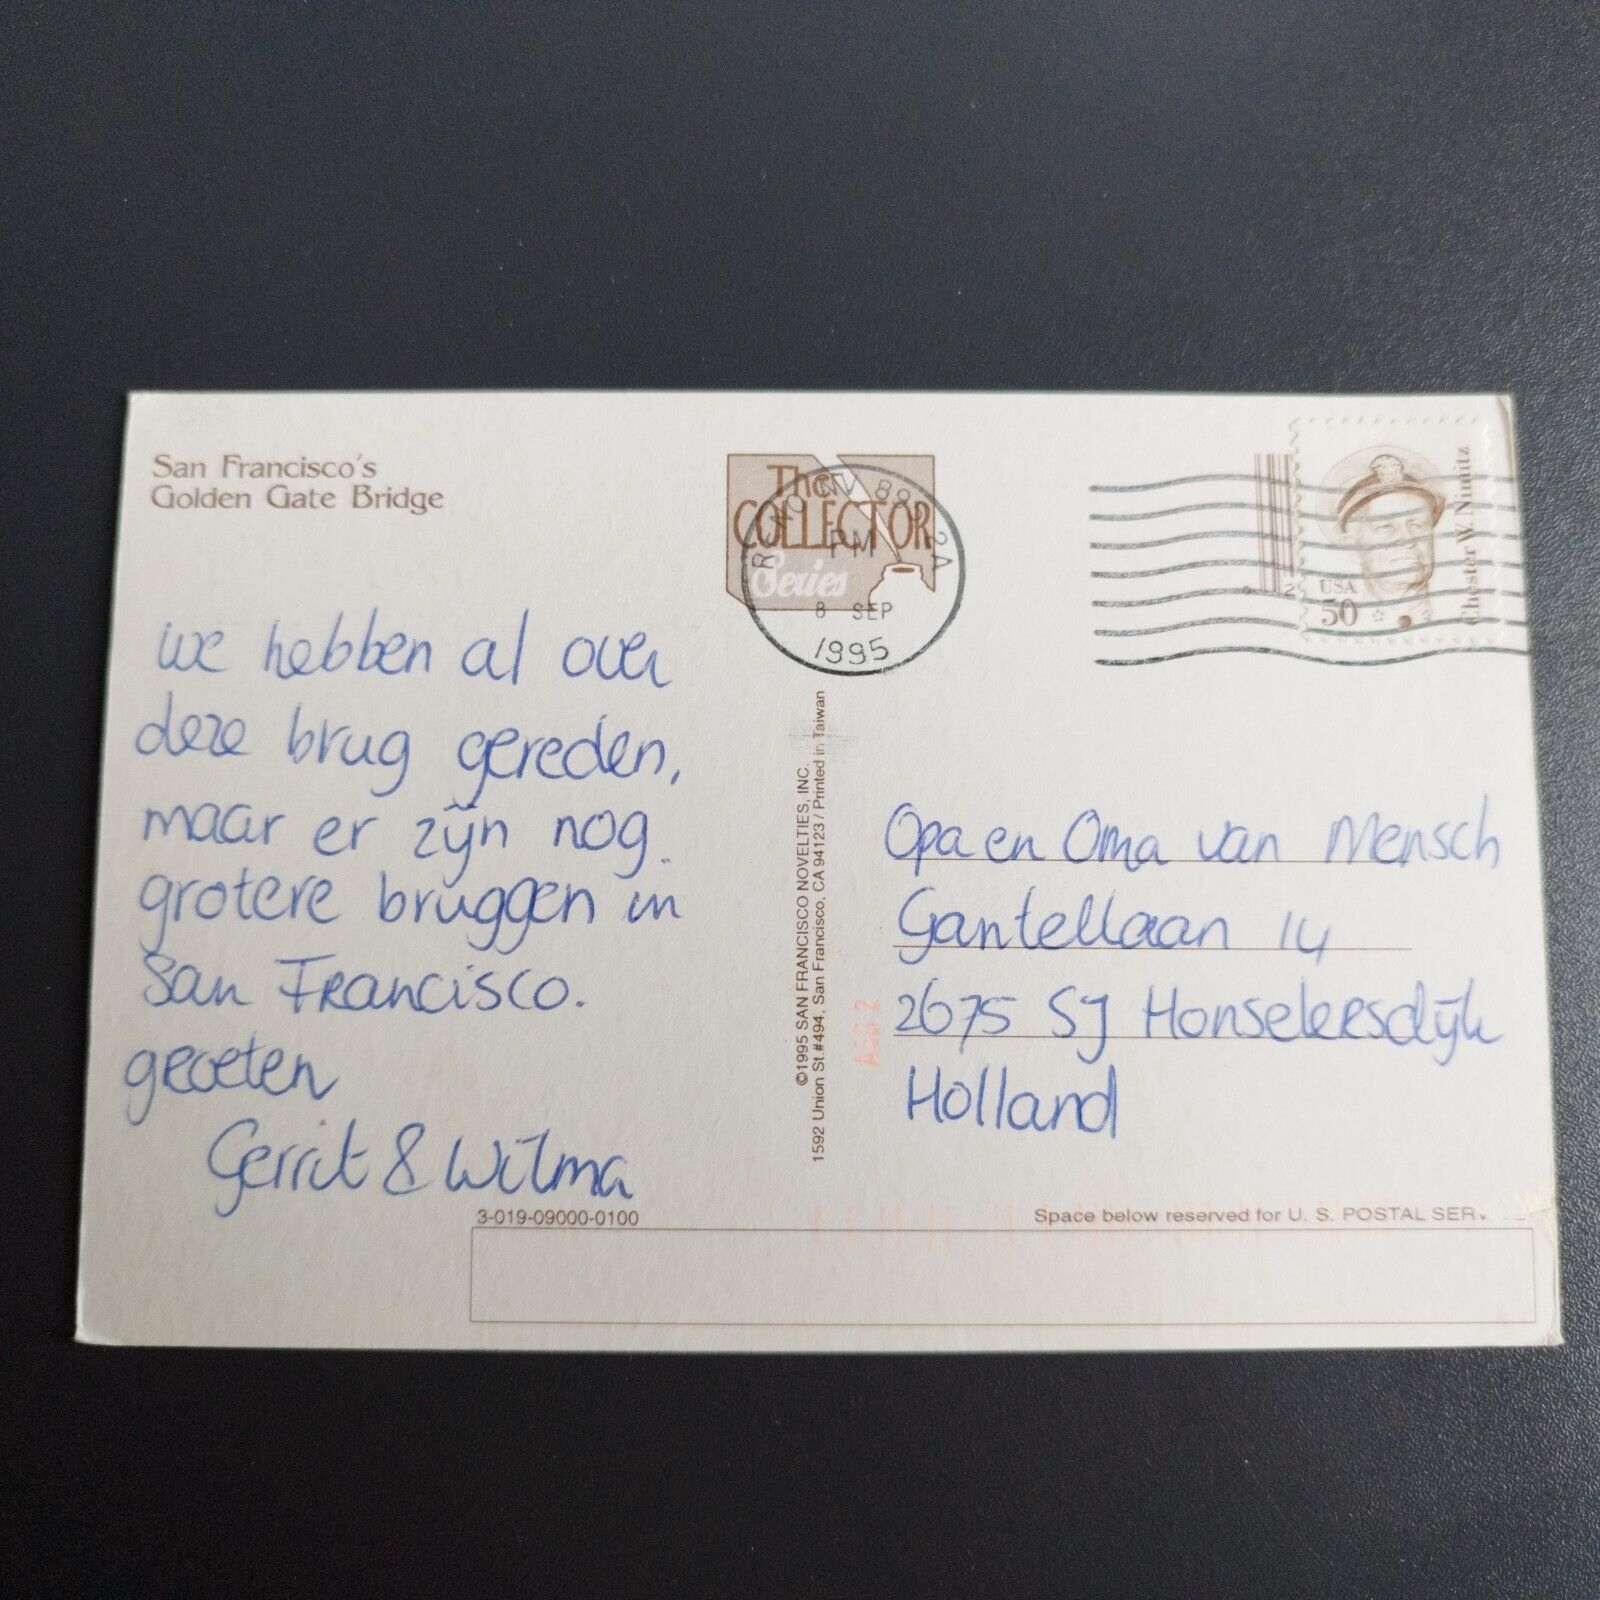 San Francisco's
Golden Gate Bridge
The
COLLECTOR
Series
RENO NV 89
PM
8 SEP
1995
USA
50
Chester W. Nimitz
we hebben al over
deze brug gereden,
maar er zijn nog
grotere bruggen in
San Francisco.
groeten
Gerrit & Wilma
©1995 SAN FRANCISCO NOVELTIES, INC.
1592 Union St.#494, San Francisco, CA 94123 / Printed in Taiwan
Opa en Oma van Mensch
Gantellaan 14
2675 SJ Honselersdijk
Holland
3-019-09000-0100
Space below reserved for U. S. POSTAL